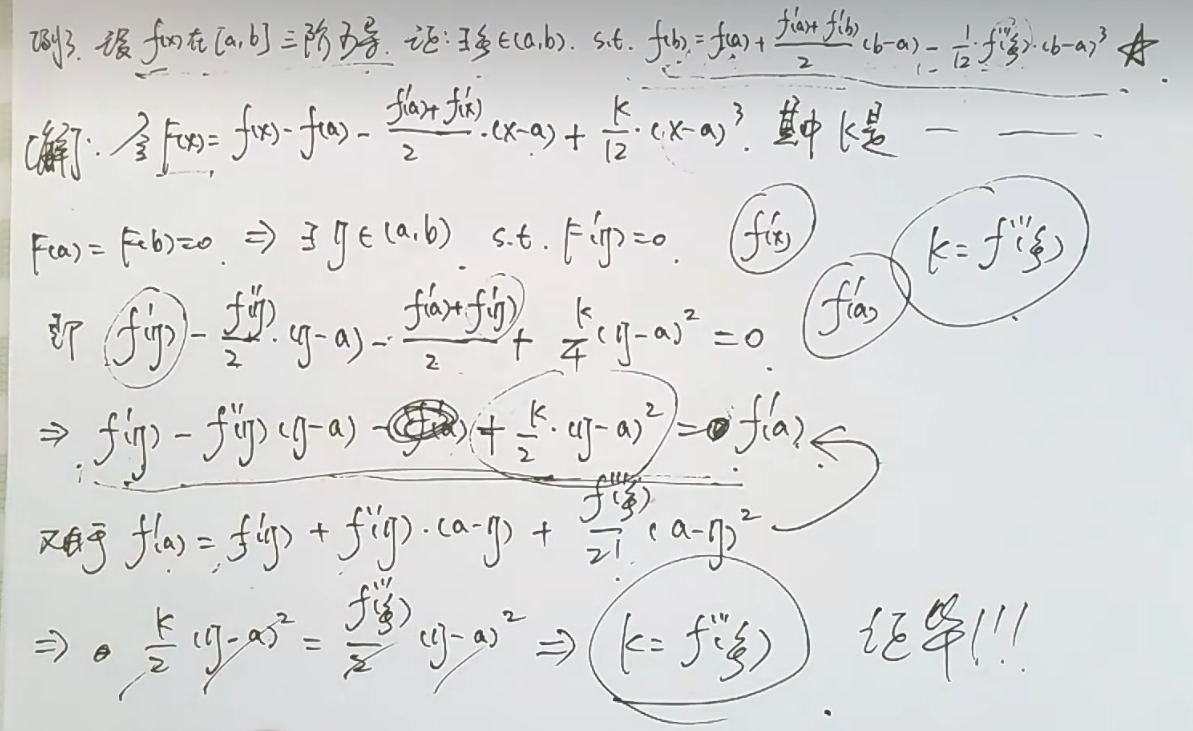 例3. 设 f(x) 在 [a,b] 三阶可导. 证: ∃ξ∈(a,b). s.t. f(b)=f(a)+\frac{f'(a)+f'(b)}{2}(b-a)-\frac{1}{12}f'''(ξ)·(b-a)³ ☆.
[解]: 令 F(x)=f(x)-f(a)-\frac{f'(a)+f'(x)}{2}·(x-a)+\frac{k}{12}·(x-a)³. 其中 k是 — ——
F(a)=F(b)=0. ⇒ ∃ η∈(a,b). s.t. F'(η)=0. f'(x) k=f'''(ξ)
即 f'(η)-\frac{f''(η)}{2}·(η-a)-\frac{f'(a)+f'(η)}{2}+\frac{k}{4}(η-a)²=0. f'(a)
⇒ f'(η)-f''(η)(η-a)+\frac{k}{2}·(η-a)²=f'(a)
又由于 f'(a)=f'(η)+f''(η)·(a-η)+\frac{f'''(ξ)}{2!}(a-η)²
⇒ \frac{k}{2}(η-a)²=\frac{f'''(ξ)}{2}(η-a)² ⇒ k=f'''(ξ) 证毕!!!